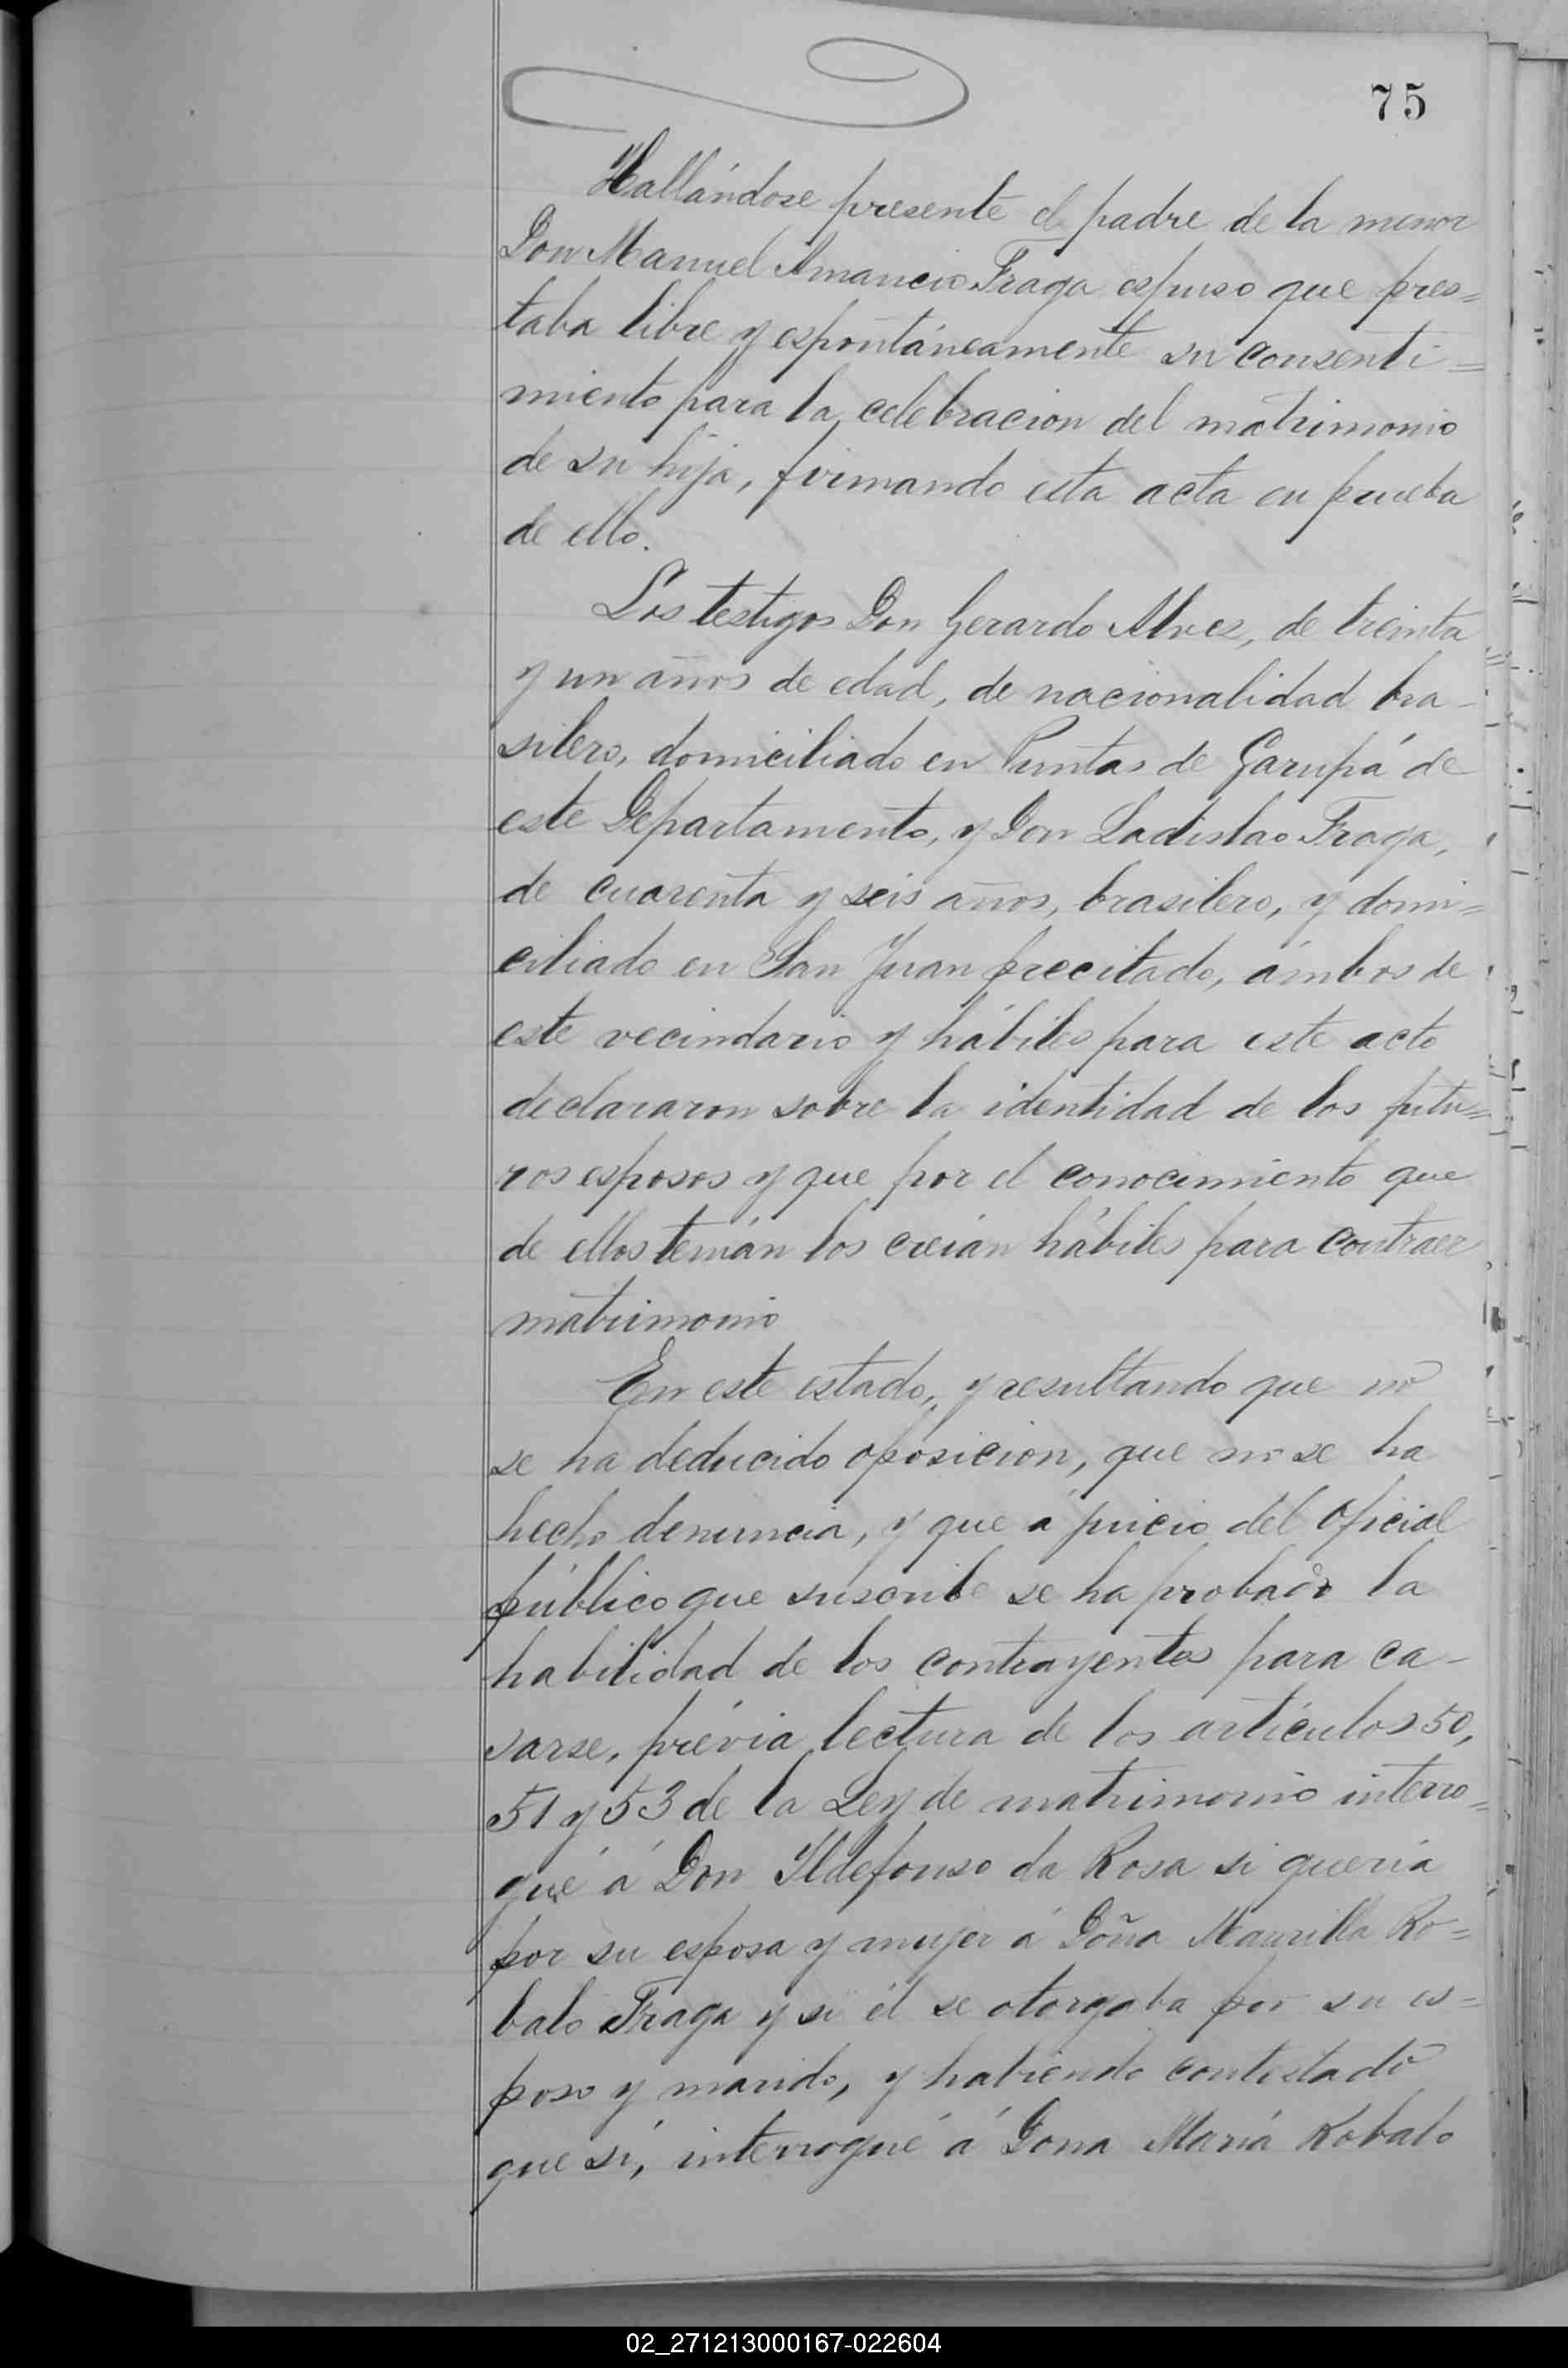 75
Hallándose presente el padre de la menor
Don Manuel Amancio Fraga espuso que pres=
taba libre y espontáneamente su consenti=
miento para la celebracion del matrimonio
de su hija, firmando esta acta en prueba
de ello.
Los testigos Don Gerardo Alvez, de treinta
y un años de edad, de nacionalidad bra-
silero, domiciliado en Puntas de Garupá de
este Departamento, y Don Ladislao Fraga,
de cuarenta y seis años, brasilero, y domi=
ciliado en San Juan precitado, ámbos de
este vecindario y hábiles para este acto
declararon sobre la identidad de los futu=
ros esposos y que por el conocimiento que
de ellos tenián los creián hábiles para contraer
matrimonio
En este estado, y resultando que no
se ha deducido oposicion, que no se ha
hecho denuncia, y que á juicio del Oficial
público que suscribe se ha probado la
habilidad de los contrayentes para ca-
sarse, prévia lectura de los artículos 50,
51 y 53 de la Ley de matrimonio interro=
gué á Don Ildefonso da Rosa si queria
por su esposa y mujer á Doña Maurilla Ro=
balo Fraga y si él se otorgaba por su es=
poso y marido, y habiendo contestado
que sí, interrogué á Dona Mariá Robalo
02_271213000167-022604